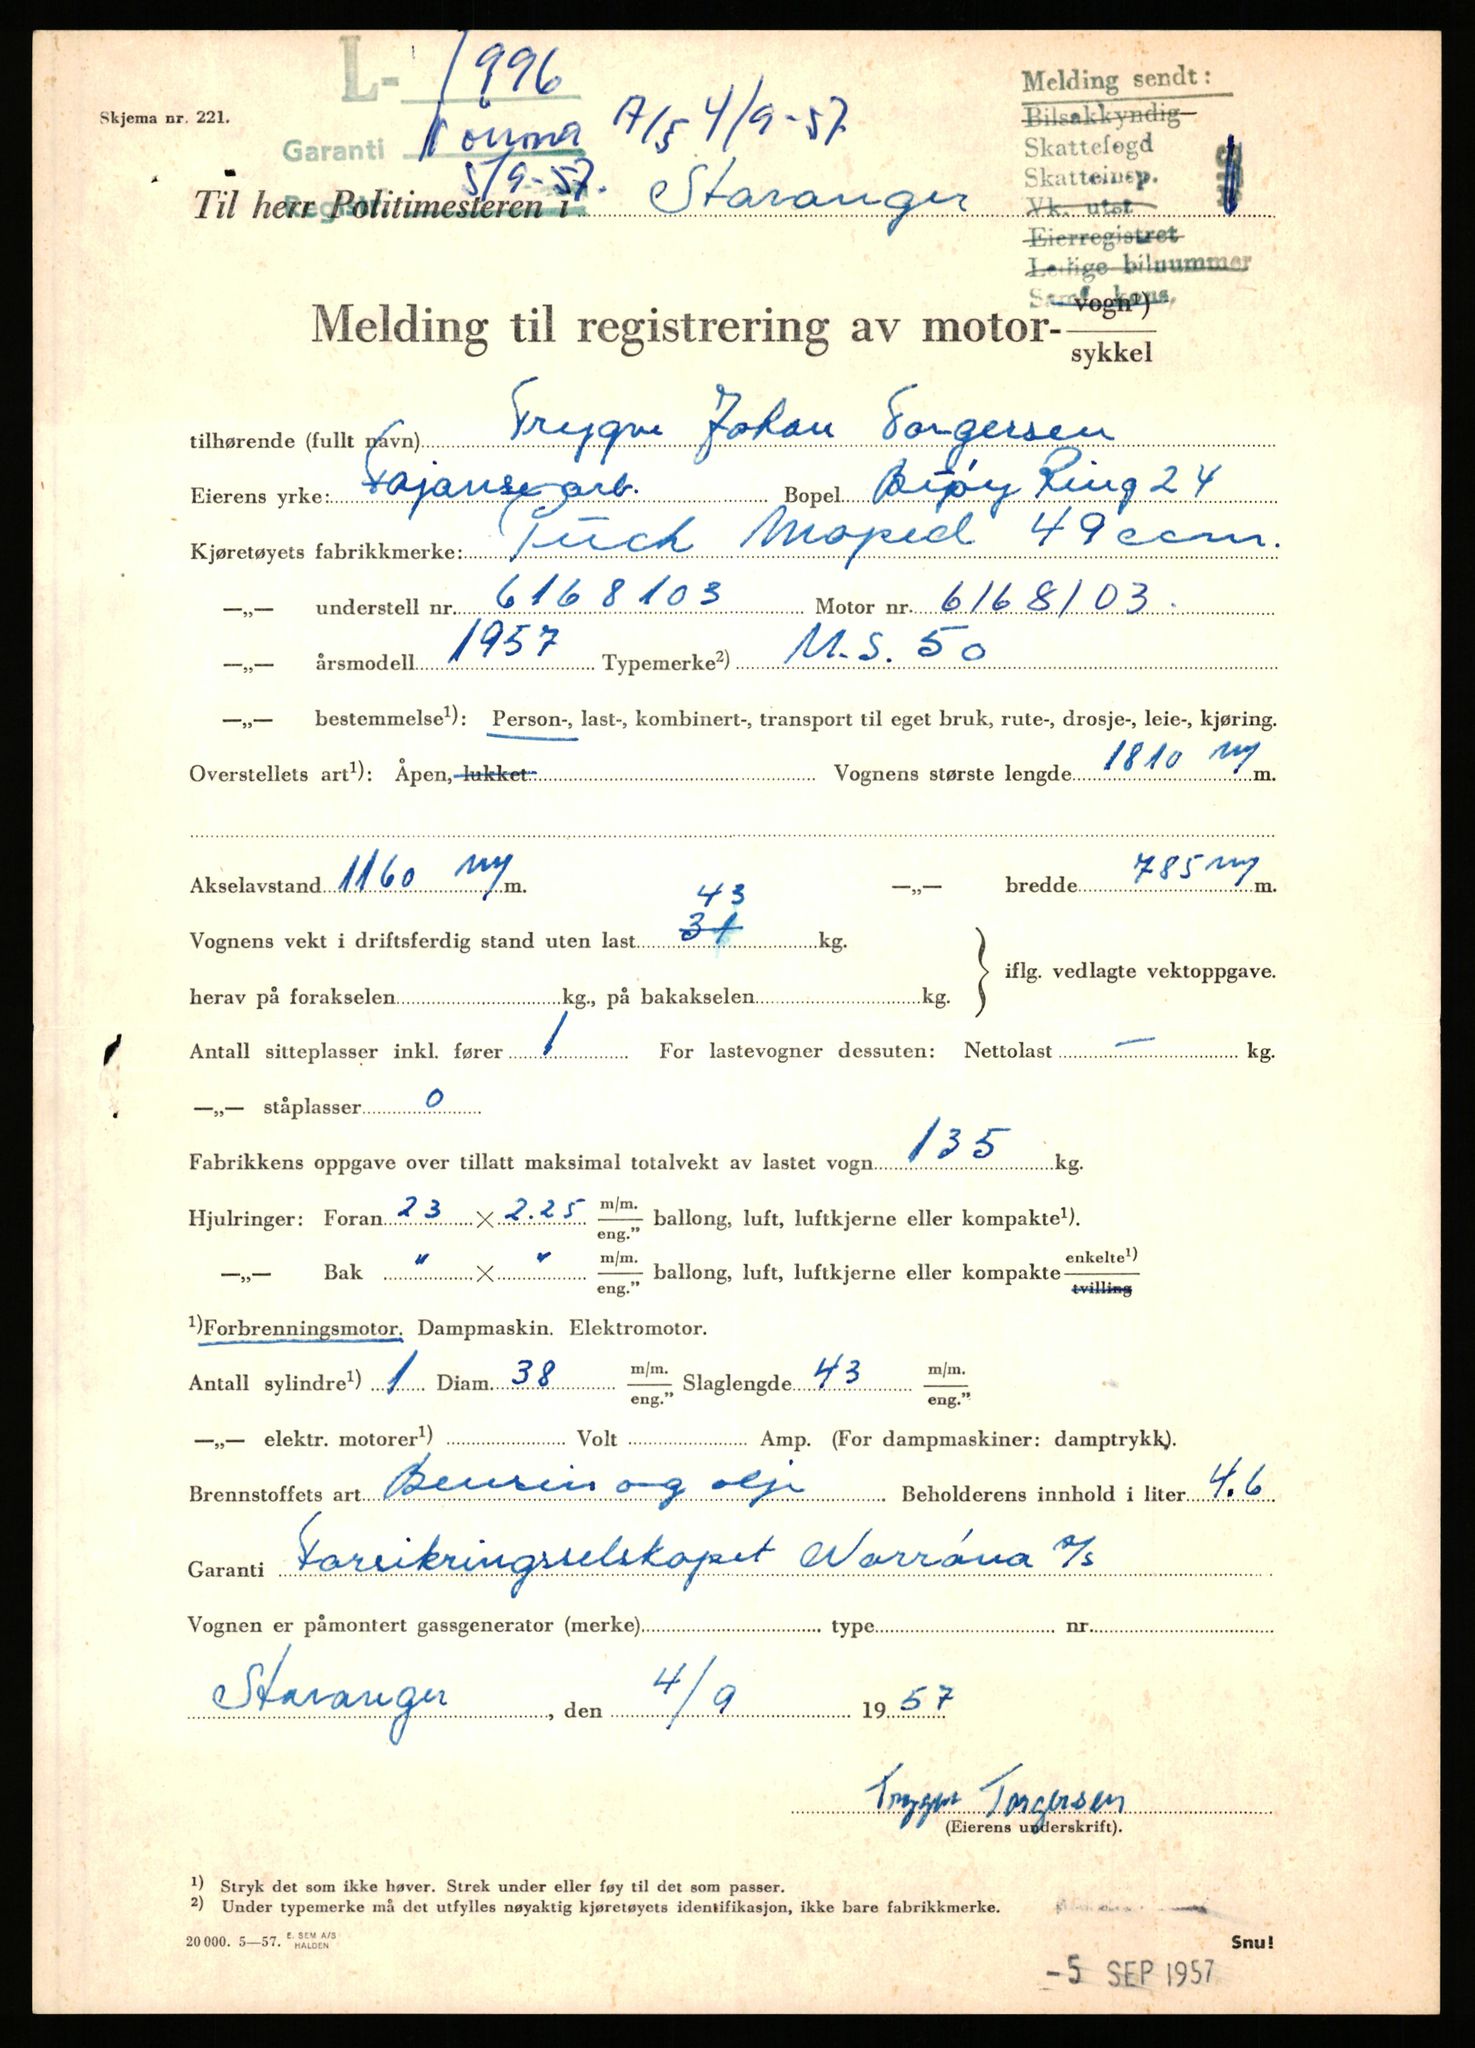 L- 1996
Skjema nr. 221.
Garanti Norrøna A/S 4/9-57.
5/9-57.
Til herr Politimesteren i Stavanger
Melding sendt:
Bilsakkyndig
Skattefogd
Skatteinsp.
Vk. utst
Eierregistret
Ledige bilnummer
Melding til registrering av motor- vogn¹)
sykkel
tilhørende (fullt navn) Trygve Johan Torgersen
Eierens yrke: Fajansearb. Bopel Ring 24
Kjøretøyets fabrikkmerke: Puch Moped 49 ccm.
—„— understell nr. 6168103 Motor nr. 6168103.
—„— årsmodell 1957 Typemerke²) M.S. 50
—„— bestemmelse¹): Person-, last-, kombinert-, transport til eget bruk, rute-, drosje-, leie-, kjøring.
Overstellets art¹): Åpen, lukket Vognens største lengde 1810 m/m.
Akselavstand 1160 m/m. —„— bredde 785 m/m.
43
Vognens vekt i driftsferdig stand uten last 31 kg.
iflg. vedlagte vektoppgave.
herav på forakselen kg., på bakakselen kg.
Antall sitteplasser inkl. fører 1 For lastevogner dessuten: Nettolast — kg.
—„— ståplasser 0
Fabrikkens oppgave over tillatt maksimal totalvekt av lastet vogn 135 kg.
Hjulringer: Foran 23 × 2.25 m/m. eng.” ballong, luft, luftkjerne eller kompakte¹).
—„— Bak „ × „ m/m. eng.” ballong, luft, luftkjerne eller kompakte enkelte¹) tvilling
¹)Forbrenningsmotor. Dampmaskin. Elektromotor.
Antall sylindre¹) 1 Diam. 38 m/m. eng.” Slaglengde 43 m/m. eng.”
—„— elektr. motorer¹) Volt Amp. (For dampmaskiner: damptrykk).
Brennstoffets art Bensin og olje Beholderens innhold i liter 4.6
Garanti Forsikringsselskapet Norrøna A/S
Vognen er påmontert gassgenerator (merke) type nr.
Stavanger, den 4/9 1957
Trygve Torgersen
(Eierens underskrift).
¹) Stryk det som ikke høver. Strek under eller føy til det som passer.
²) Under typemerke må det utfylles nøyaktig kjøretøyets identifikasjon, ikke bare fabrikkmerke.
20 000. 5—57. E. SEM A/S HALDEN
Snu!
-5 SEP 1957